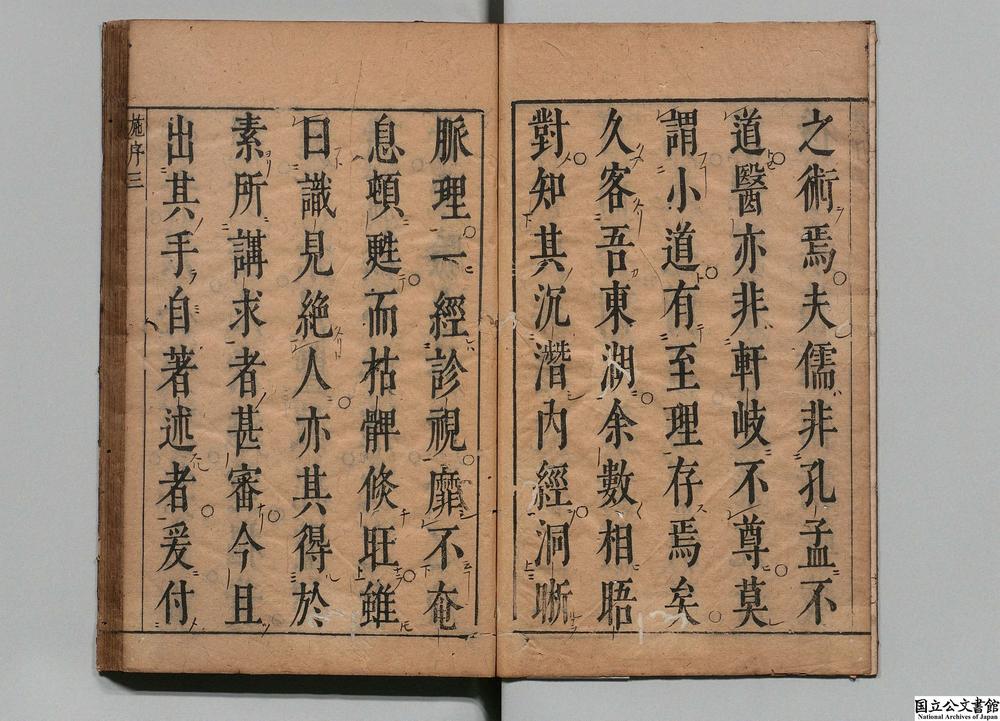 之術焉夫儒非孔孟不
道醫亦非軒岐不尊莫
謂小道有至理存焉矣
久客吾東湖余數相晤
對知其沉潛內經洞晰
脈理一經診視靡不奄
息頓甦而枯髀倐旺雖
曰識見絶人亦其得於
素所講求者甚審今且
出其手自著述者爰付
施序三
国立公文書館
National Archives of Japan